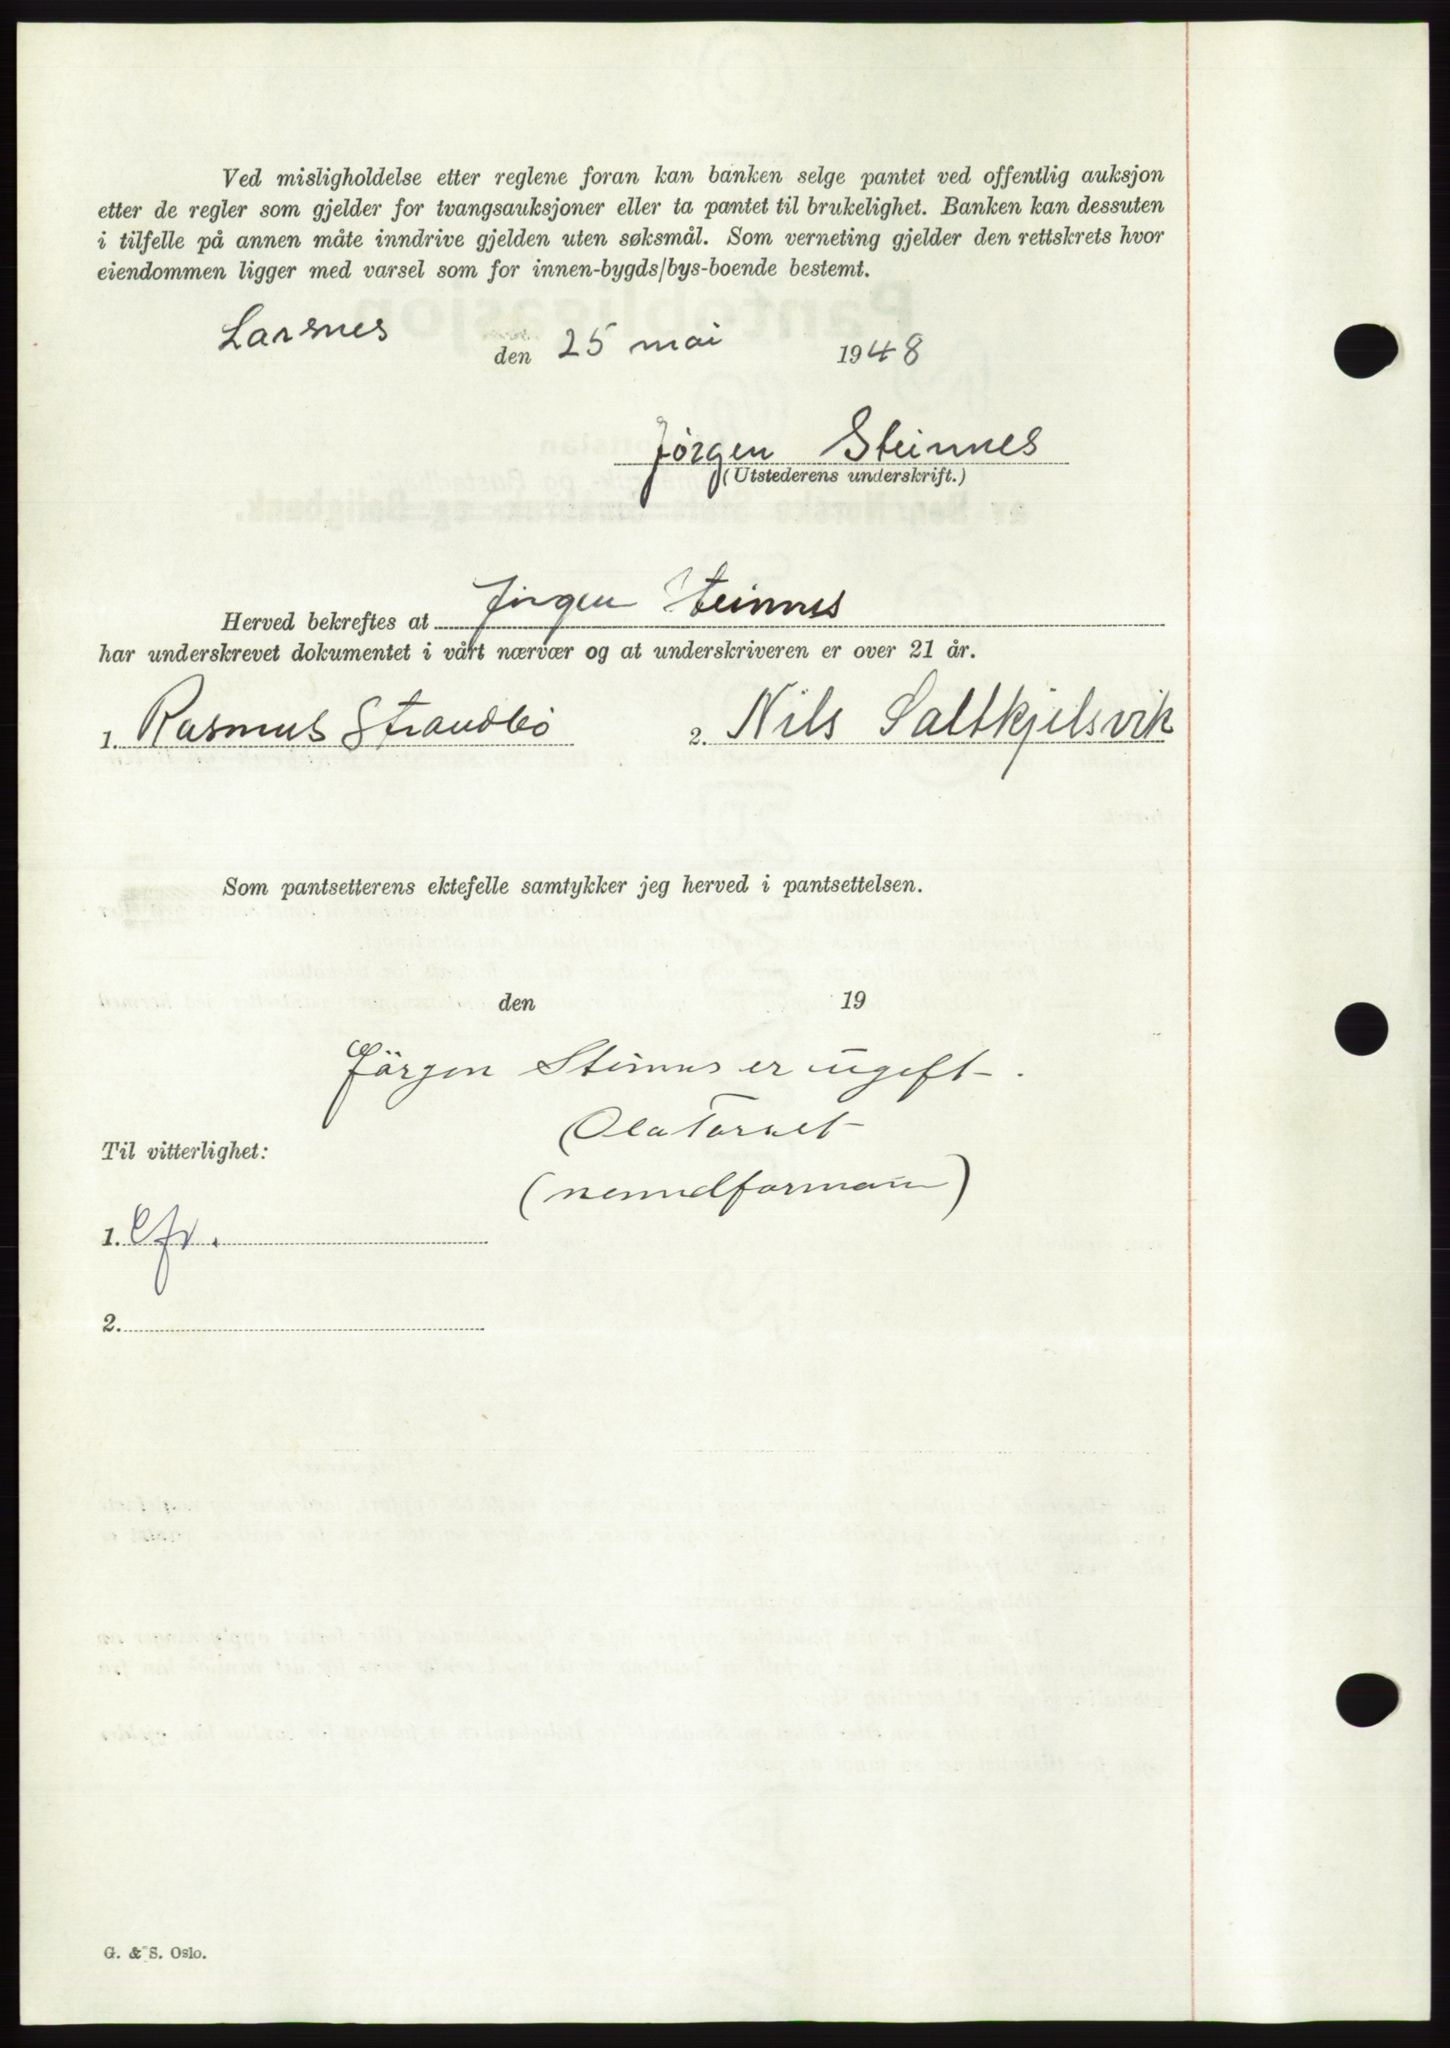 Ved misligholdelse etter reglene foran kan banken selge pantet ved offentlig auksjon
etter de regler som gjelder for tvangsauksjoner eller ta pantet til brukelighet. Banken kan dessuten
i tilfelle på annen måte inndrive gjelden uten søksmål. Som verneting gjelder den rettskrets hvor
eiendommen ligger med varsel som for innen-bygds/bys-boende bestemt.
Larsnes den 25 mai 1948
Jørgen Steinnes
(Utstederens underskrift.)
Herved bekreftes at Jørgen Steinnes
har underskrevet dokumentet i vårt nærvær og at underskriveren er over 21 år.
1. Rasmus Strandbö 2. Nils Saltkjelsvik
Som pantsetterens ektefelle samtykker jeg herved i pantsettelsen.
den 19
Jörgen Steinnes er ugift.
Ola Tarnet
Til vitterlighet:
(nemndformann)
1.
2.
G. & S. Oslo.